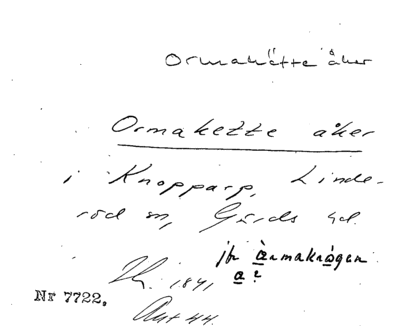 Ormakätte åker
Ormakette åker
i Knopparp, Linde-
röd sn, Gärds hd.
jfr ärmakrogen
a?
1841,
Nr 7722.
Akt 44.